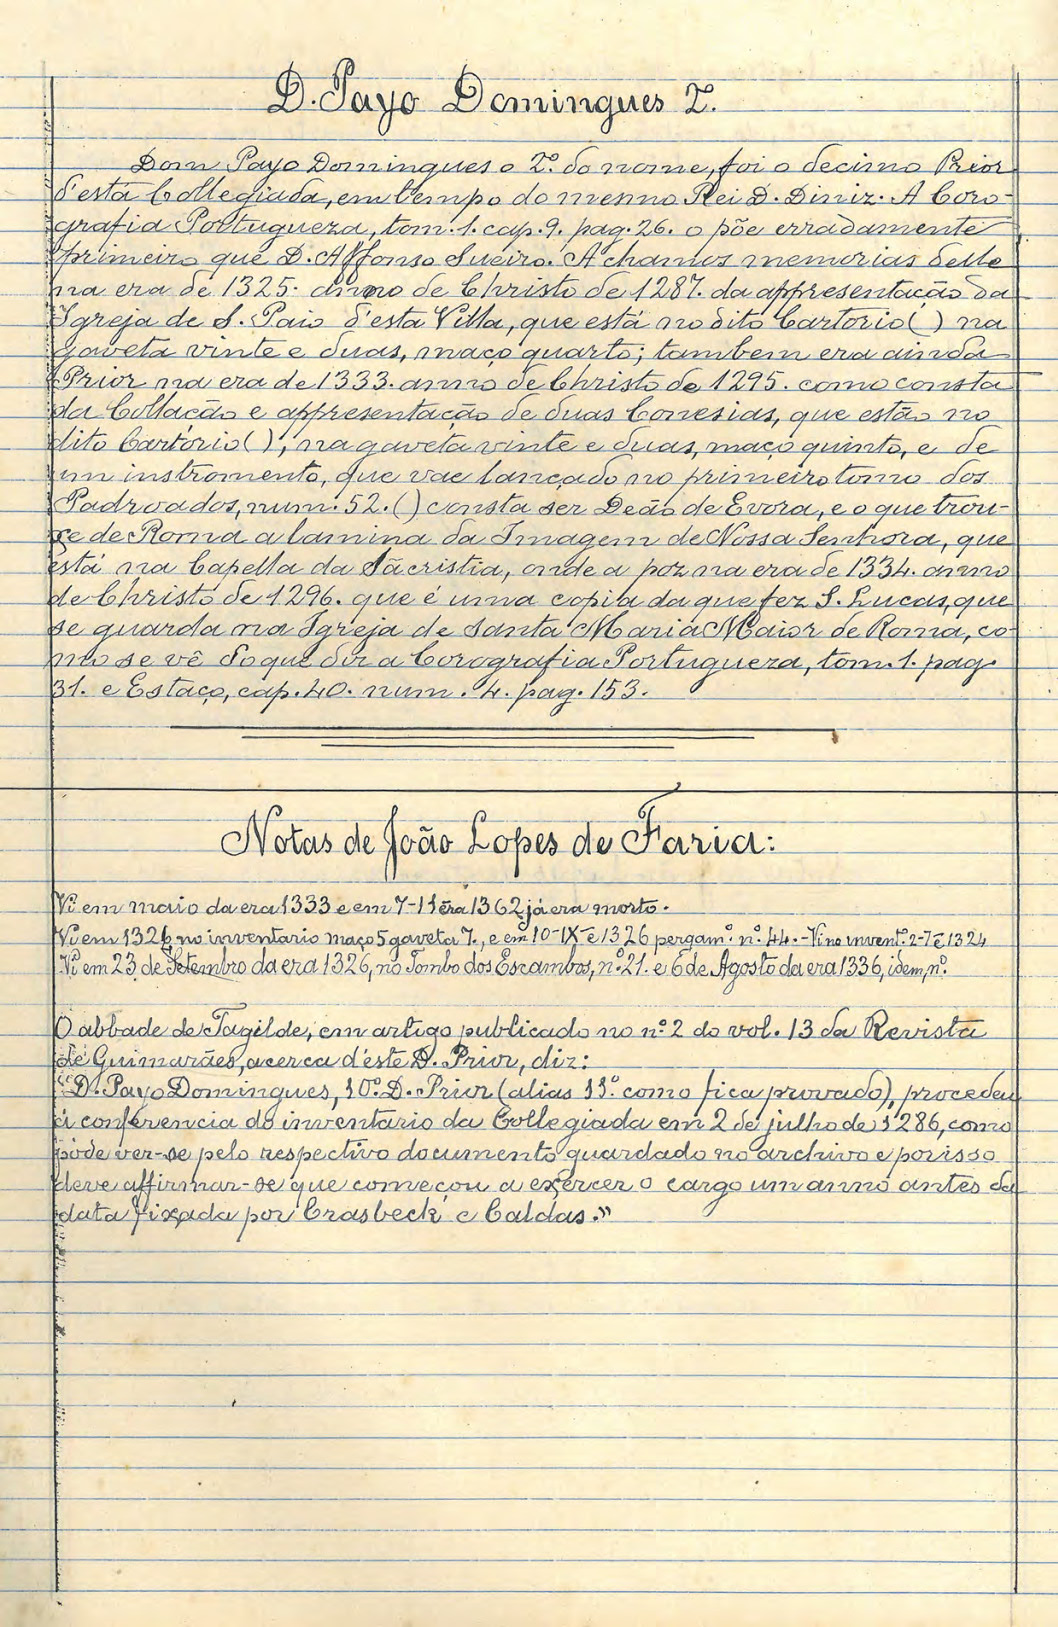 D. Payo Domingues 2.
Dom Payo Domingues o 2º. do nome, foi o decimo Prior
d'esta Collegiada, em tempo do mesmo Rei D. Diniz. A Coro-
grafia Portugueza, tom. 1. cap. 9. pag. 26. o põe erradamente
primeiro que D. Affonso Sueiro. Achamos memorias delle
na era de 1325. anno de Christo de 1287. da appresentação da
Igreja de S. Paio d'esta Villa, que está no dito Cartorio ( ) na
gaveta vinte e duas, maço quarto; tambem era ainda
Prior na era de 1333. anno de Christo de 1295. como consta
da Collação e appresentação de duas Conesias, que estão no
dito Cartório ( ), na gaveta vinte e duas, maço quinto, e de
um instromento, que vae lançado no primeiro tomo dos
Padroados, num. 52. ( ) consta ser Deão de Evora, e o que trou-
çe de Roma a lamina da Imagem de Nossa Senhora, que
está na Capella da Sàcristia, onde a poz na era de 1334. anno
de Christo de 1296. que é uma copia da que fez S. Lucas, que
se guarda na Igreja de Santa Maria Maior de Roma, co-
mo se vê do que diz a Corografia Portugueza, tom. 1. pag.
31. e Estaço, cap. 40. num. 4. pag. 153.
Notas de João Lopes de Faria:
Vi em maio da era 1333 e em 7-11 era 1362 já era morto.
Vi em 1326 no inventario maço 5 gaveta 7., e em 10-IX-é 1326 pergamº. nº. 44. - Vi no inventº. 2-7 é 1324
Vi em 23 de Setembro da era 1326, no Tombo dos Escambos, nº. 21. e 6 de Agosto da era 1336, idem, nº.
O abbade de Tagilde, em artigo publicado no nº. 2 do vol. 13 da Revista
de Guimarães, acerca d'este D. Prior, diz:
"D. Payo Domingues, 10º. D. Prior (alias 11º. como fica provado), procedeu
á conferencia do inventario da Collegiada em 2 de julho de 1286, como
póde ver-se pelo respectivo documento guardado no archivo e por isso
deve affirmar-se que começou a exercer o cargo um anno antes da
data fixada por Crasbeck e Caldas."